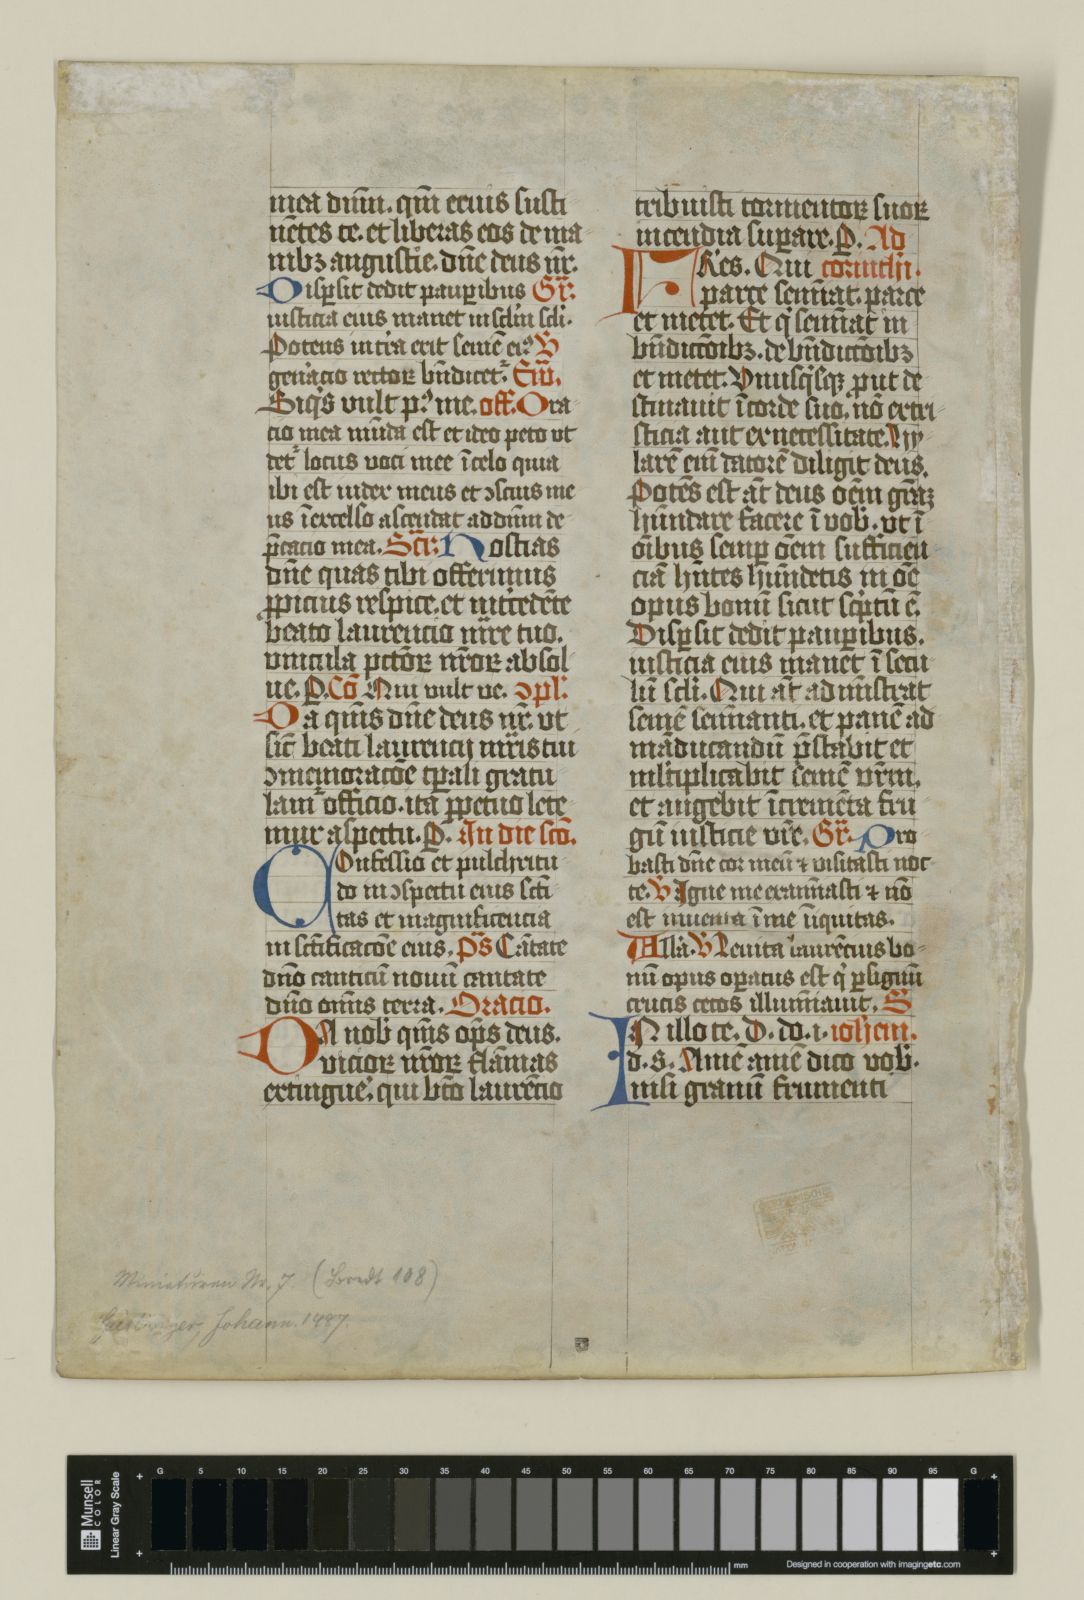 mea dn̄m. qm̄ eruis susti
nētes te. et liberas eos de ma
nibꝫ angustie. dn̄e deus nr̄.
Disꝑsit dedit pauꝑibus Gr̄.
iusticia eius manet in sclm̄ scli.
Potens in tr̄a erit semē eiꝰ V̄
gen̄acio rector̄ bn̄dicet᷑. Ew̄.
Siqͥs vult pꝰ me. off. Ora
cio mea mūda est et ideo peto vt
det᷑ locus voci mee ī celo quia
ibi est iudex meus et ɔscius me
us ī excelso ascendat ad dn̄m de
p̄catio mea. Secr̄. Hostias
dn̄e quas tibi offerimus
ꝓpicius respice. et int̄cedēte
beato laurencio mr̄e tuo.
vincula pcōꝝ nr̄oꝝ absol
ue. P. Cō Qui vult ve. ɔpl.
Da qm̄s dn̄e deus nr̄. vt
sic̄ beati laurencij mr̄is tui
ɔmemoracōe tp̄ali gratu
lam᷑ officio. ita ꝑpetuo lete
mur aspectu. P. In die sco.
Confessio et pulchritu
do in ɔspectu eius scti
tas et magnificencia
in sctificacōe eius. p̄s Cātate
dn̄o canticū nouū cantate
dn̄o omīs terra. Oracio.
DA nob̄ qm̄s op̄s deus.
vicioꝝ nr̄oꝝ flāmas
extinguē. qui bt̄o laurēcio
tribuisti tormentoꝝ suoꝝ
incendia suꝑare. P. Ad
Fr̄es. Qui corinthi.
parce semīat. parce
et metet. Et qͥ semīat in
bn̄dictōibꝫ. de bn̄dictōibꝫ
et metet. Vnusqͥsqꝫ ꝓut de
stinauit ī corde suo. nō extri
sticia aut ex necessitate. Hy
larē em̄ datorē diligit deus.
Potēs est āt deus oēm gr̄aꝫ
hūndare facere ī vob̄. vt ī
oībus semꝑ oēm sufficien
ciā hn̄tes hūndetis in oē
opus bonū sicut sc̄ptū ē.
Disꝑsit dedit pauꝑibus.
iusticia eius manet ī secu
lū scli. Qui āt ad mīstrat
semē semīanti. et panē ad
māducandū p̄stabit et
ml̄tiplicabit semē vr̄m.
et augebit īcremēta fru
gū iusticie vr̄e. Gr̄. Pro
basti dn̄e cor meū ⁊ visitasti noc
te. V̄ Igne me examīasti ⁊ nō
est inuenta ī me īiquitas.
Alla. V̄ Leuita laurēcius bo
nū opus oꝑatus est qͥ ꝑ signū
crucis cecos illumīauit. S
IN illo te. D. do. i. iohem.
d. s. Amē amē dico vob̄.
nisi granū frumenti
Miniaturen Nr. 7. (Bredt 108)
Johann. 1487.
Munsell COLOR
Linear Gray Scale
G 5 10 15 20 25 30 35 40 45 50 55 60 65 70 75 80 85 90 95 G
mm
Designed in cooperation with imagingetc.com